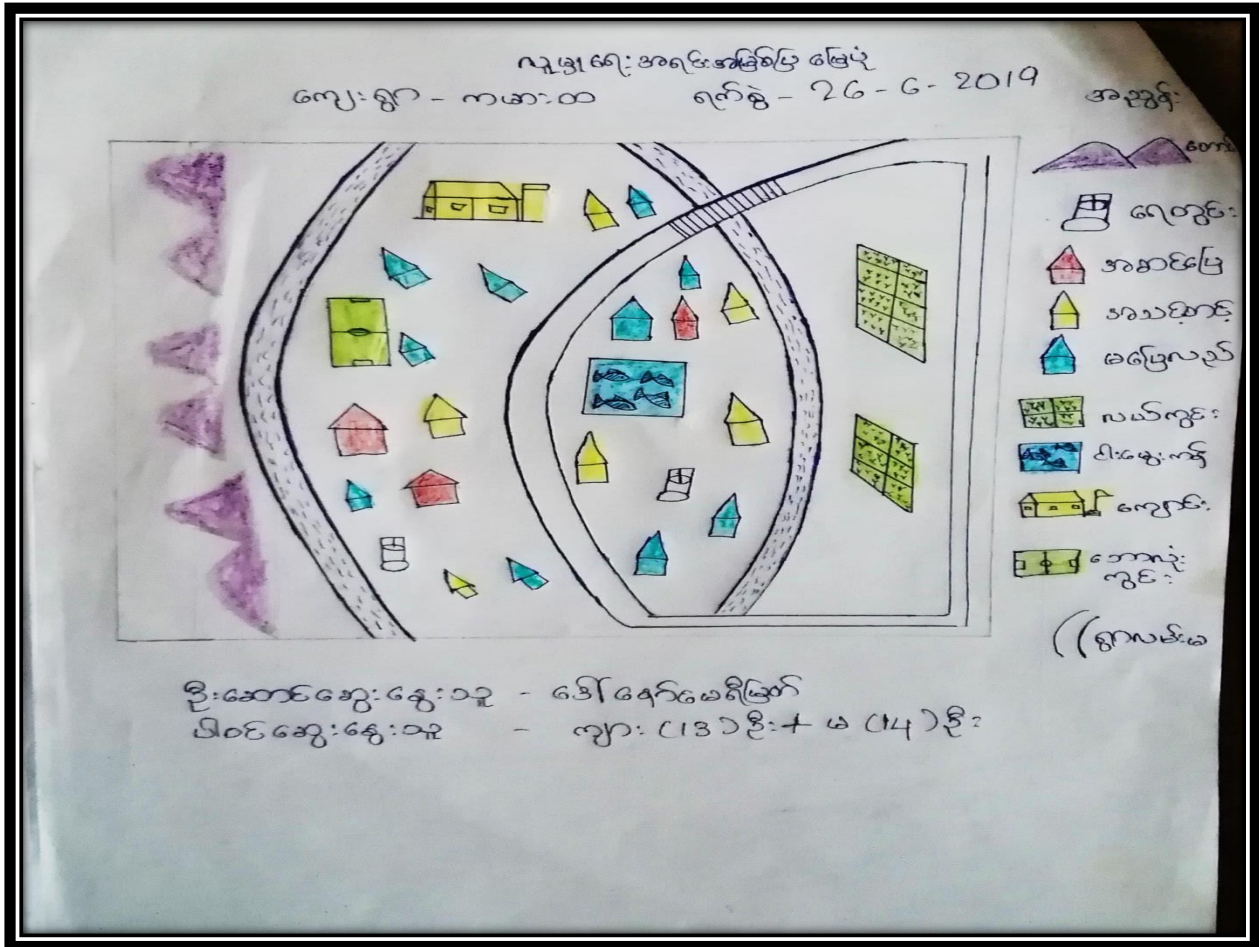 လူမှုရေး အရင်းအမြစ်ပြ မြေပုံ
ကျေးရွာ - ကဖားထာ ရက်စွဲ - 26 - 6 - 2019
အညွှန်း
တောင်
ရေတွင်း
အဆင်ပြေ
အသင့်တင့်
မပြေလည်
လယ်ကွင်း
ငါးမွေးကန်
ကျောင်း
ဘောလုံး
ကွင်း
ရွာလမ်းမ
ဦးဆောင်ဆွေးနွေးသူ - ဒေါ်နော်မေရီမြတ်
ပါဝင်ဆွေးနွေးသူ - ကျား (13) ဦး + မ (14) ဦး